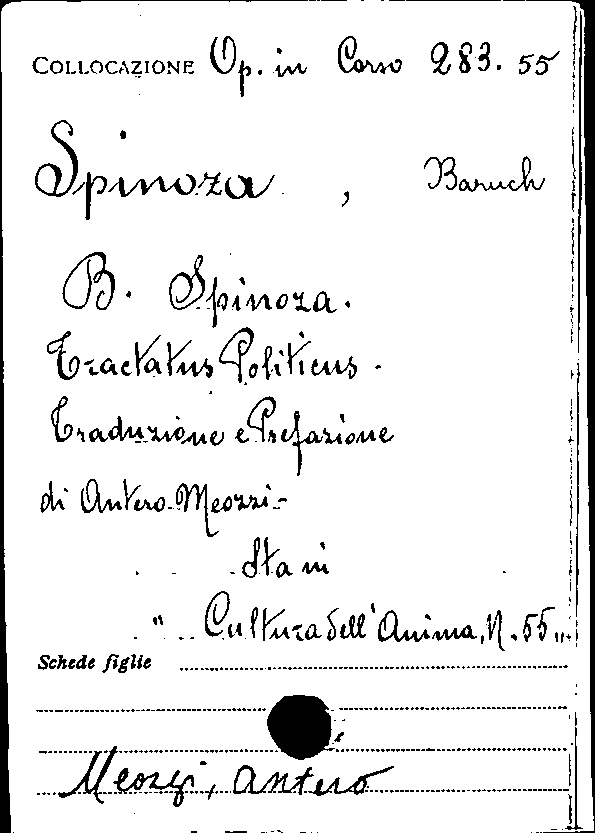 COLLOCAZIONE Op. in Corso 283. 55
Spinoza , Baruch
B. Spinoza.
Tractatus Politicus.
Traduzione e Prefazione
di Antero Meozzi-
Sta in
" Cultura dell'Anima, N. 55 "
Schede figlie
Meozzi, Antero